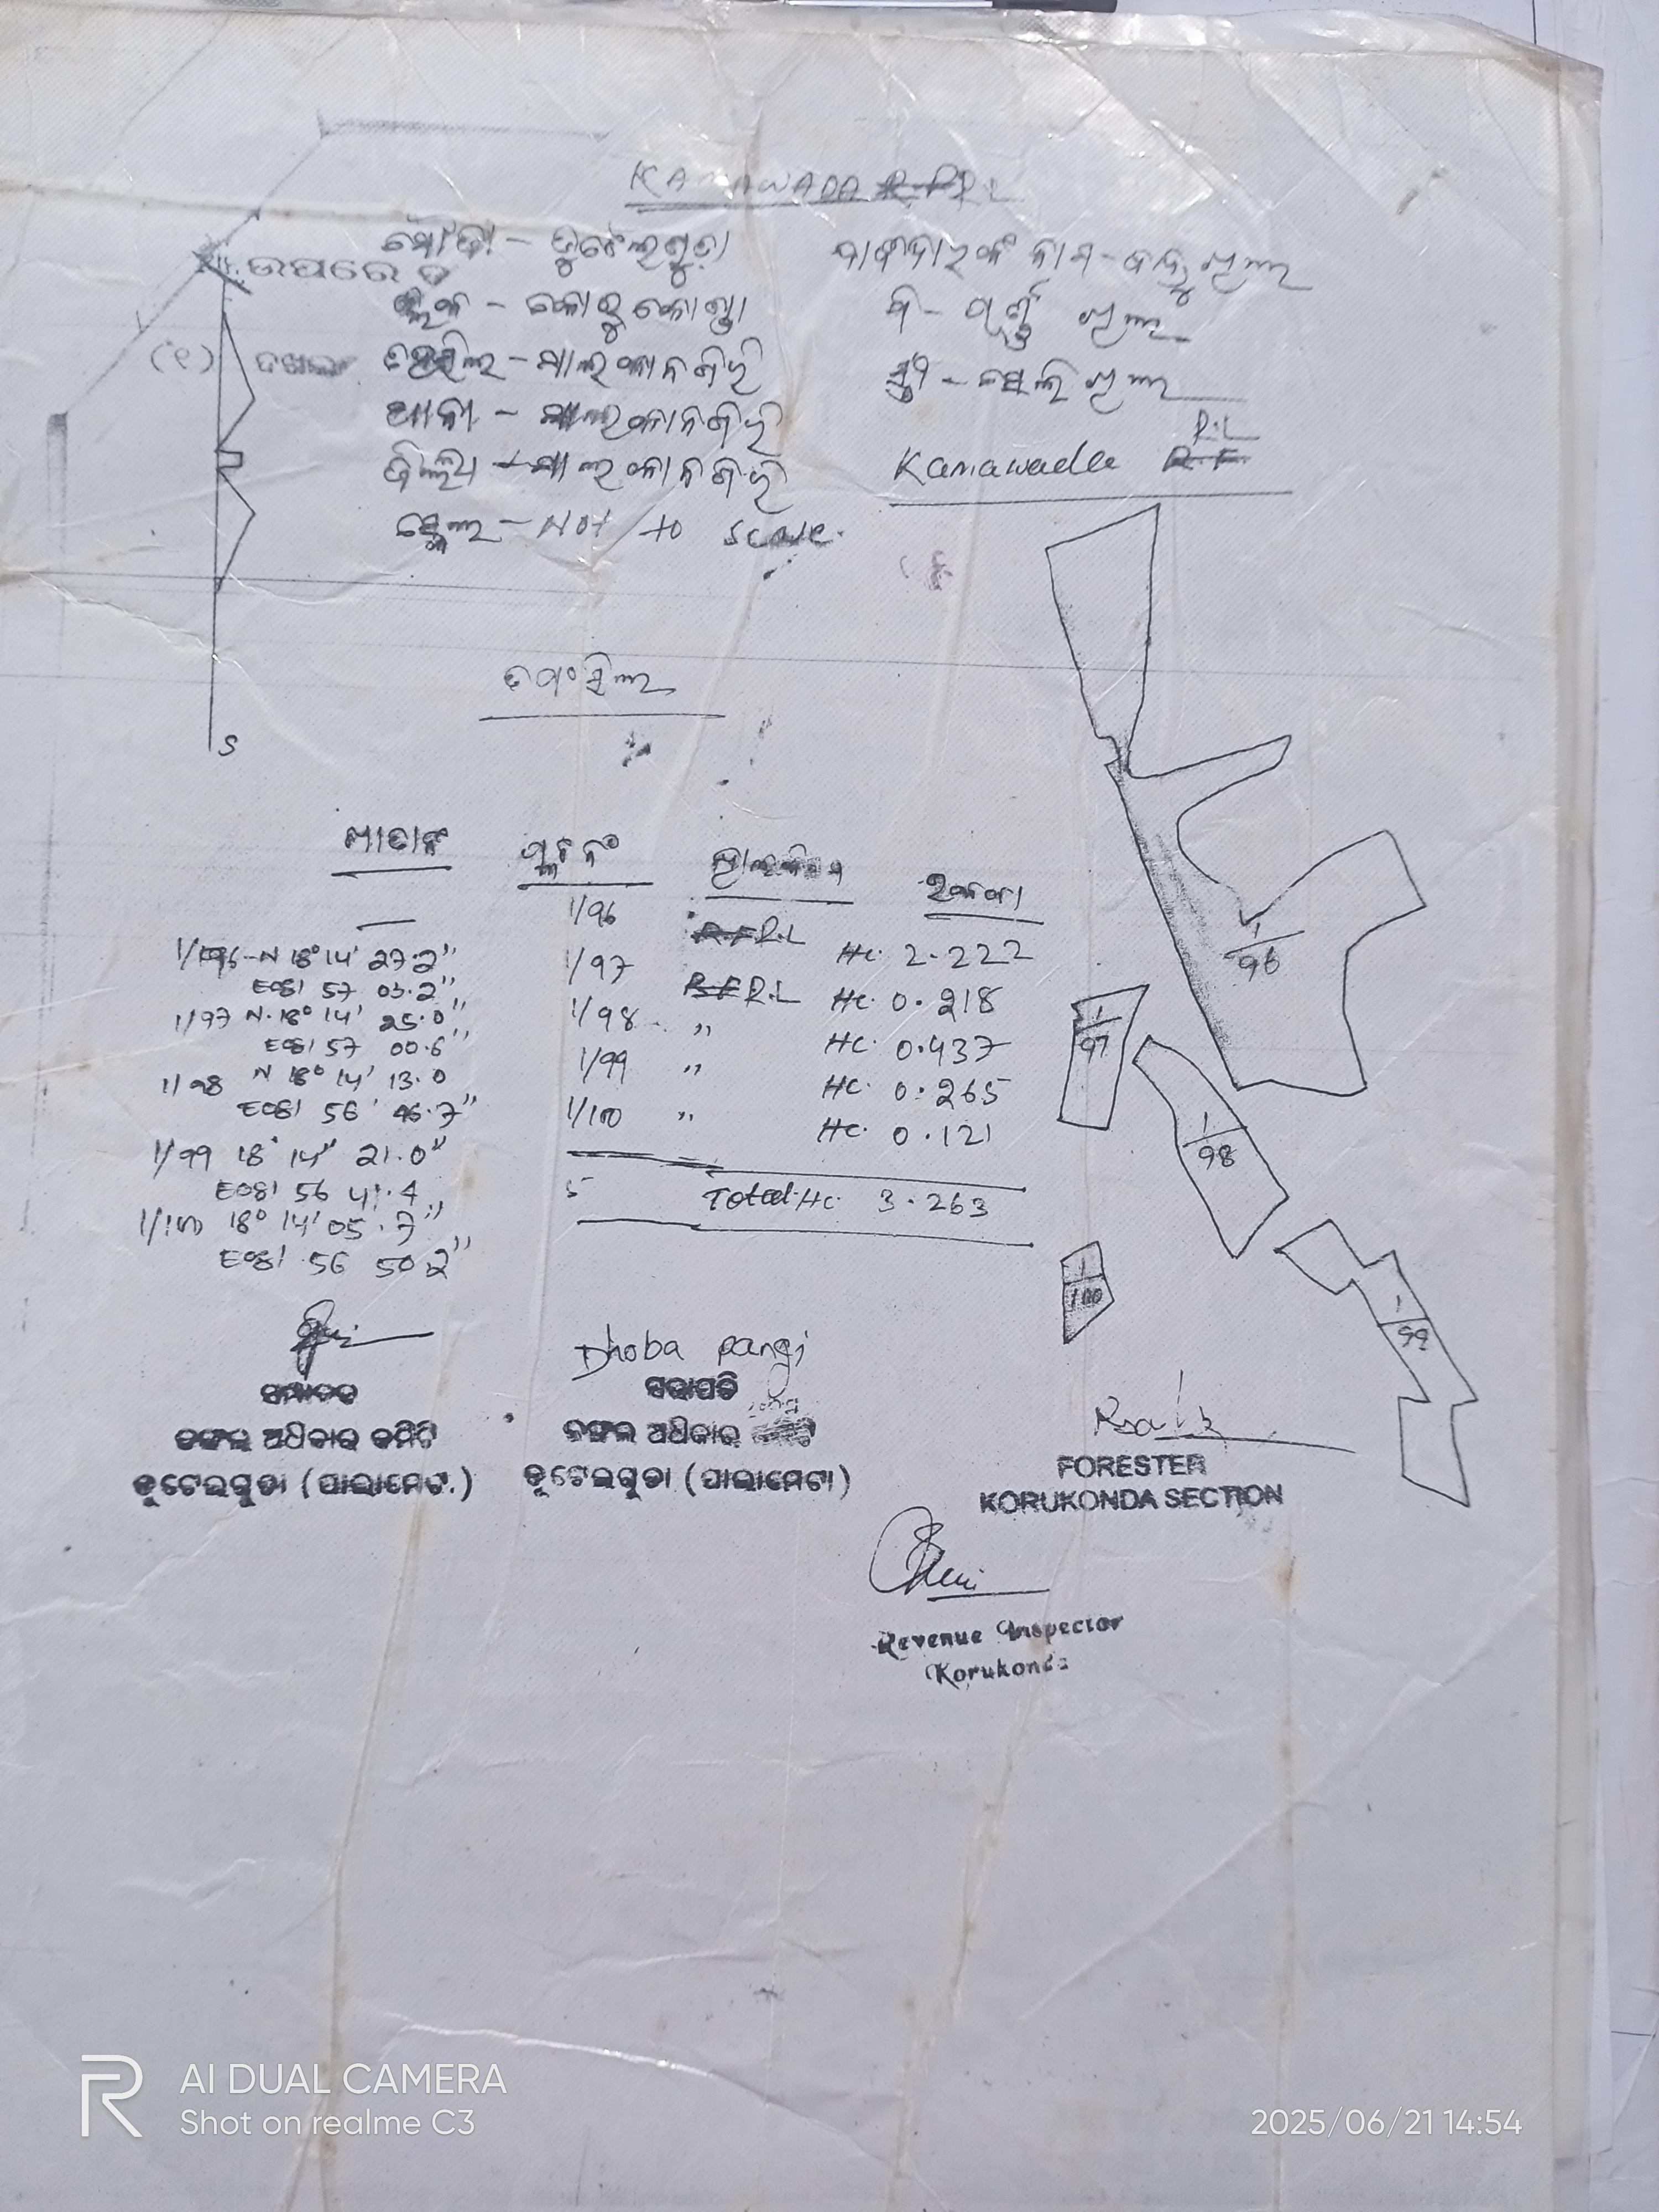 KAMAWADA R.F R.L
ମୌଜା - ଡୁଟେଲଗୁଡ଼ା
ଉପରେ
ବ୍ଲକ - କୋରୁକୋଣ୍ଡା
(୧) ଦଖଲ
ତହସିଲ - ମାଲକାନଗିରି
ଥାନା - ମାଲକାନଗିରି
ଜିଲ୍ଲା - ମାଲକାନଗିରି
ସ୍କେଲ - Not to scale.
ଦାବୀଦାରଙ୍କ ନାମ -
Kamawada R.F. R.L
S
ତପସିଲ
ଖାତାନଂ ପ୍ଲଟ ନଂ ରକବା
1/96 R.F R.L Hc. 2.222
1/97 R.F R.L Hc. 0.218
1/98 " Hc. 0.437
1/99 " Hc. 0.265
1/100 " Hc. 0.121
5 Total Hc. 3.263
1/96 - N 18° 14' 27.2"
E081 57 03.2"
1/97 N. 18° 14' 25.0"
E081 57 00.6"
1/98 N 18° 14' 13.0
E081 56' 46.7"
1/99 18° 14" 21.0"
E081 56 41.4
1/100 18° 14' 05.7"
E081 56 50.2"
1/96
1/97
1/98
1/99
1/100
Dhoba pangi
ସମ୍ପାଦକ
ଜଙ୍ଗଲ ଅଧିକାର କମିଟି
ଡୁଟେଲଗୁଡା (ପାଲାମେଟା)
ସଭାପତି
ଜଙ୍ଗଲ ଅଧିକାର କମିଟି
ଡୁଟେଲଗୁଡା (ପାଲାମେଟା)
FORESTER
KORUKONDA SECTION
Revenue Inspector
Korukonda
AI DUAL CAMERA
Shot on realme C3
2025/06/21 14:54